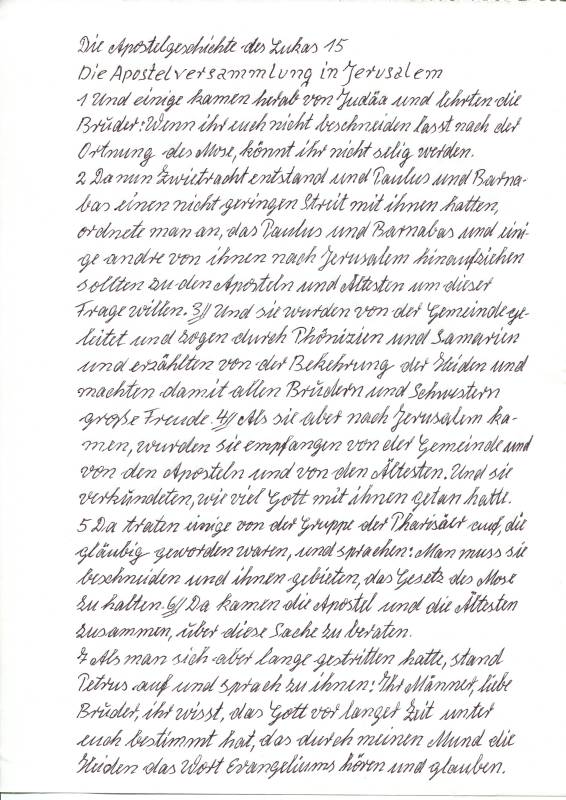 Die Apostelgeschichte des Lukas 15
Die Apostelversammlung in Jerusalem
1 Und einige kamen herab von Judäa und lehrten die
Brüder: Wenn ihr euch nicht beschneiden lasst nach der
Ortnung des Mose, könnt ihr nicht selig werden.
2 Da nun Zwietracht entstand und Paulus und Barna-
bas einen nicht geringen Streit mit ihnen hatten,
ordnete man an, das Paulus und Barnabas und eini-
ge andre von ihnen nach Jerusalem hinaufziehen
sollten zu den Aposteln und Ältesten um dieser
Frage willen. 3// Und sie wurden von der Gemeinde ge-
leitet und zogen durch Phönizien und Samarien
und erzählten von der Bekehrung der Heiden und
machten damit allen Brüdern und Schwestern
große Freude. 4// Als sie aber nach Jerusalem ka-
men, wurden sie empfangen von der Gemeinde und
von den Aposteln und von den Ältesten. Und sie
verkündeten, wie viel Gott mit ihnen getan hatte.
5 Da traten einige von der Gruppe der Pharisäer auf, die
gläubig geworden waren, und sprachen: Man muss sie
beschneiden und ihnen gebieten, das Gesetz des Mose
zu halten. 6// Da kamen die Apostel und die Ältesten
zusammen, über diese Sache zu beraten.
7 Als man sich aber lange gestritten hatte, stand
Petrus auf und sprach zu ihnen: Ihr Männer, liebe
Brüder, ihr wisst, das Gott vor langer Zeit unter
euch bestimmt hat, das durch meinen Mund die
Heiden das Wort Evangeliums hören und glauben.